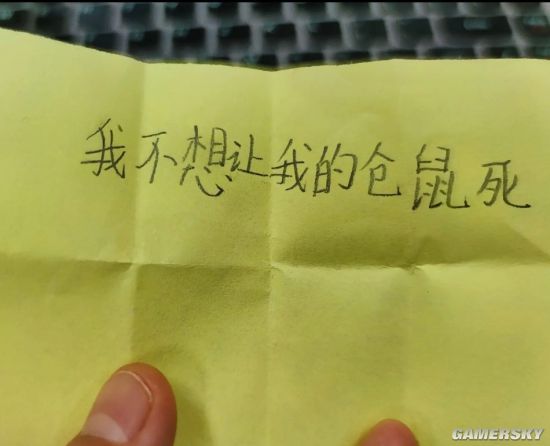 我不想让我的仓鼠死
GAMERSKY